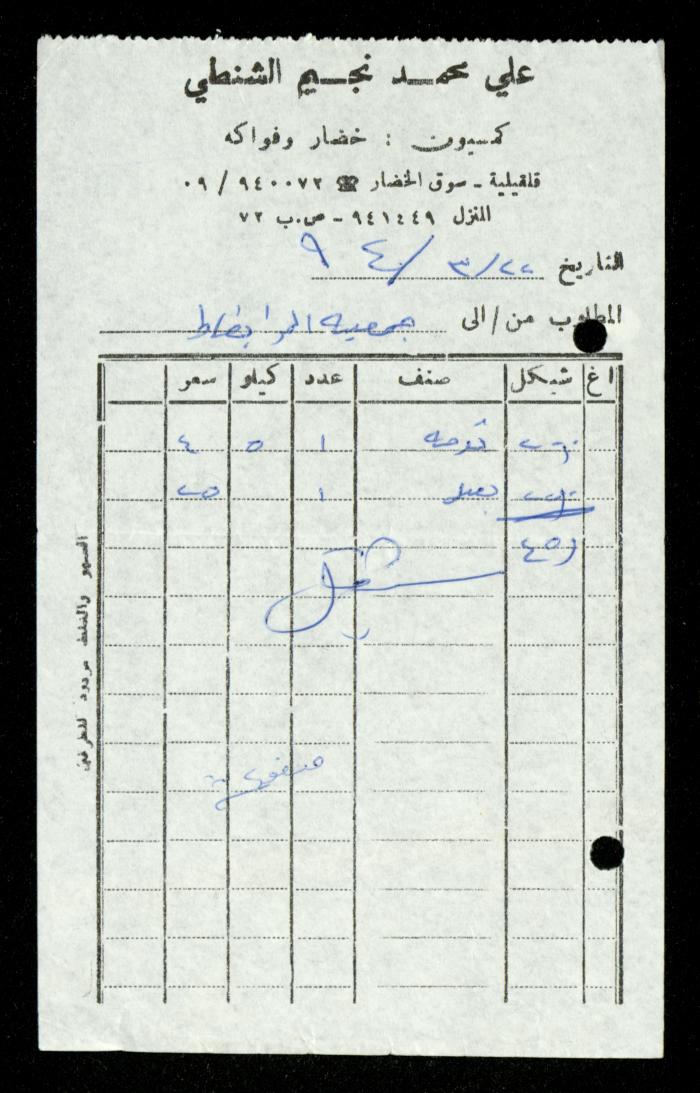 علي محمد نجيم الشنطي
كمسيون : خضار وفواكه
قلقيلية - سوق الخضار ☎ ٩٤٠٠٧٢ / ٠٩
المنزل ٩٤١٤٤٩ - ص.ب ٧٢
التاريخ ٢٢/٣/٩٤
المطلوب من/الى جمعية المرابطات
اغ شيكل صنف عدد كيلو سعر
٢٠ ١ ٥ ٤
٢٥ بصل ١ ٢٥
٤٥
شيكل
السهو والغلط مردود للطرفين